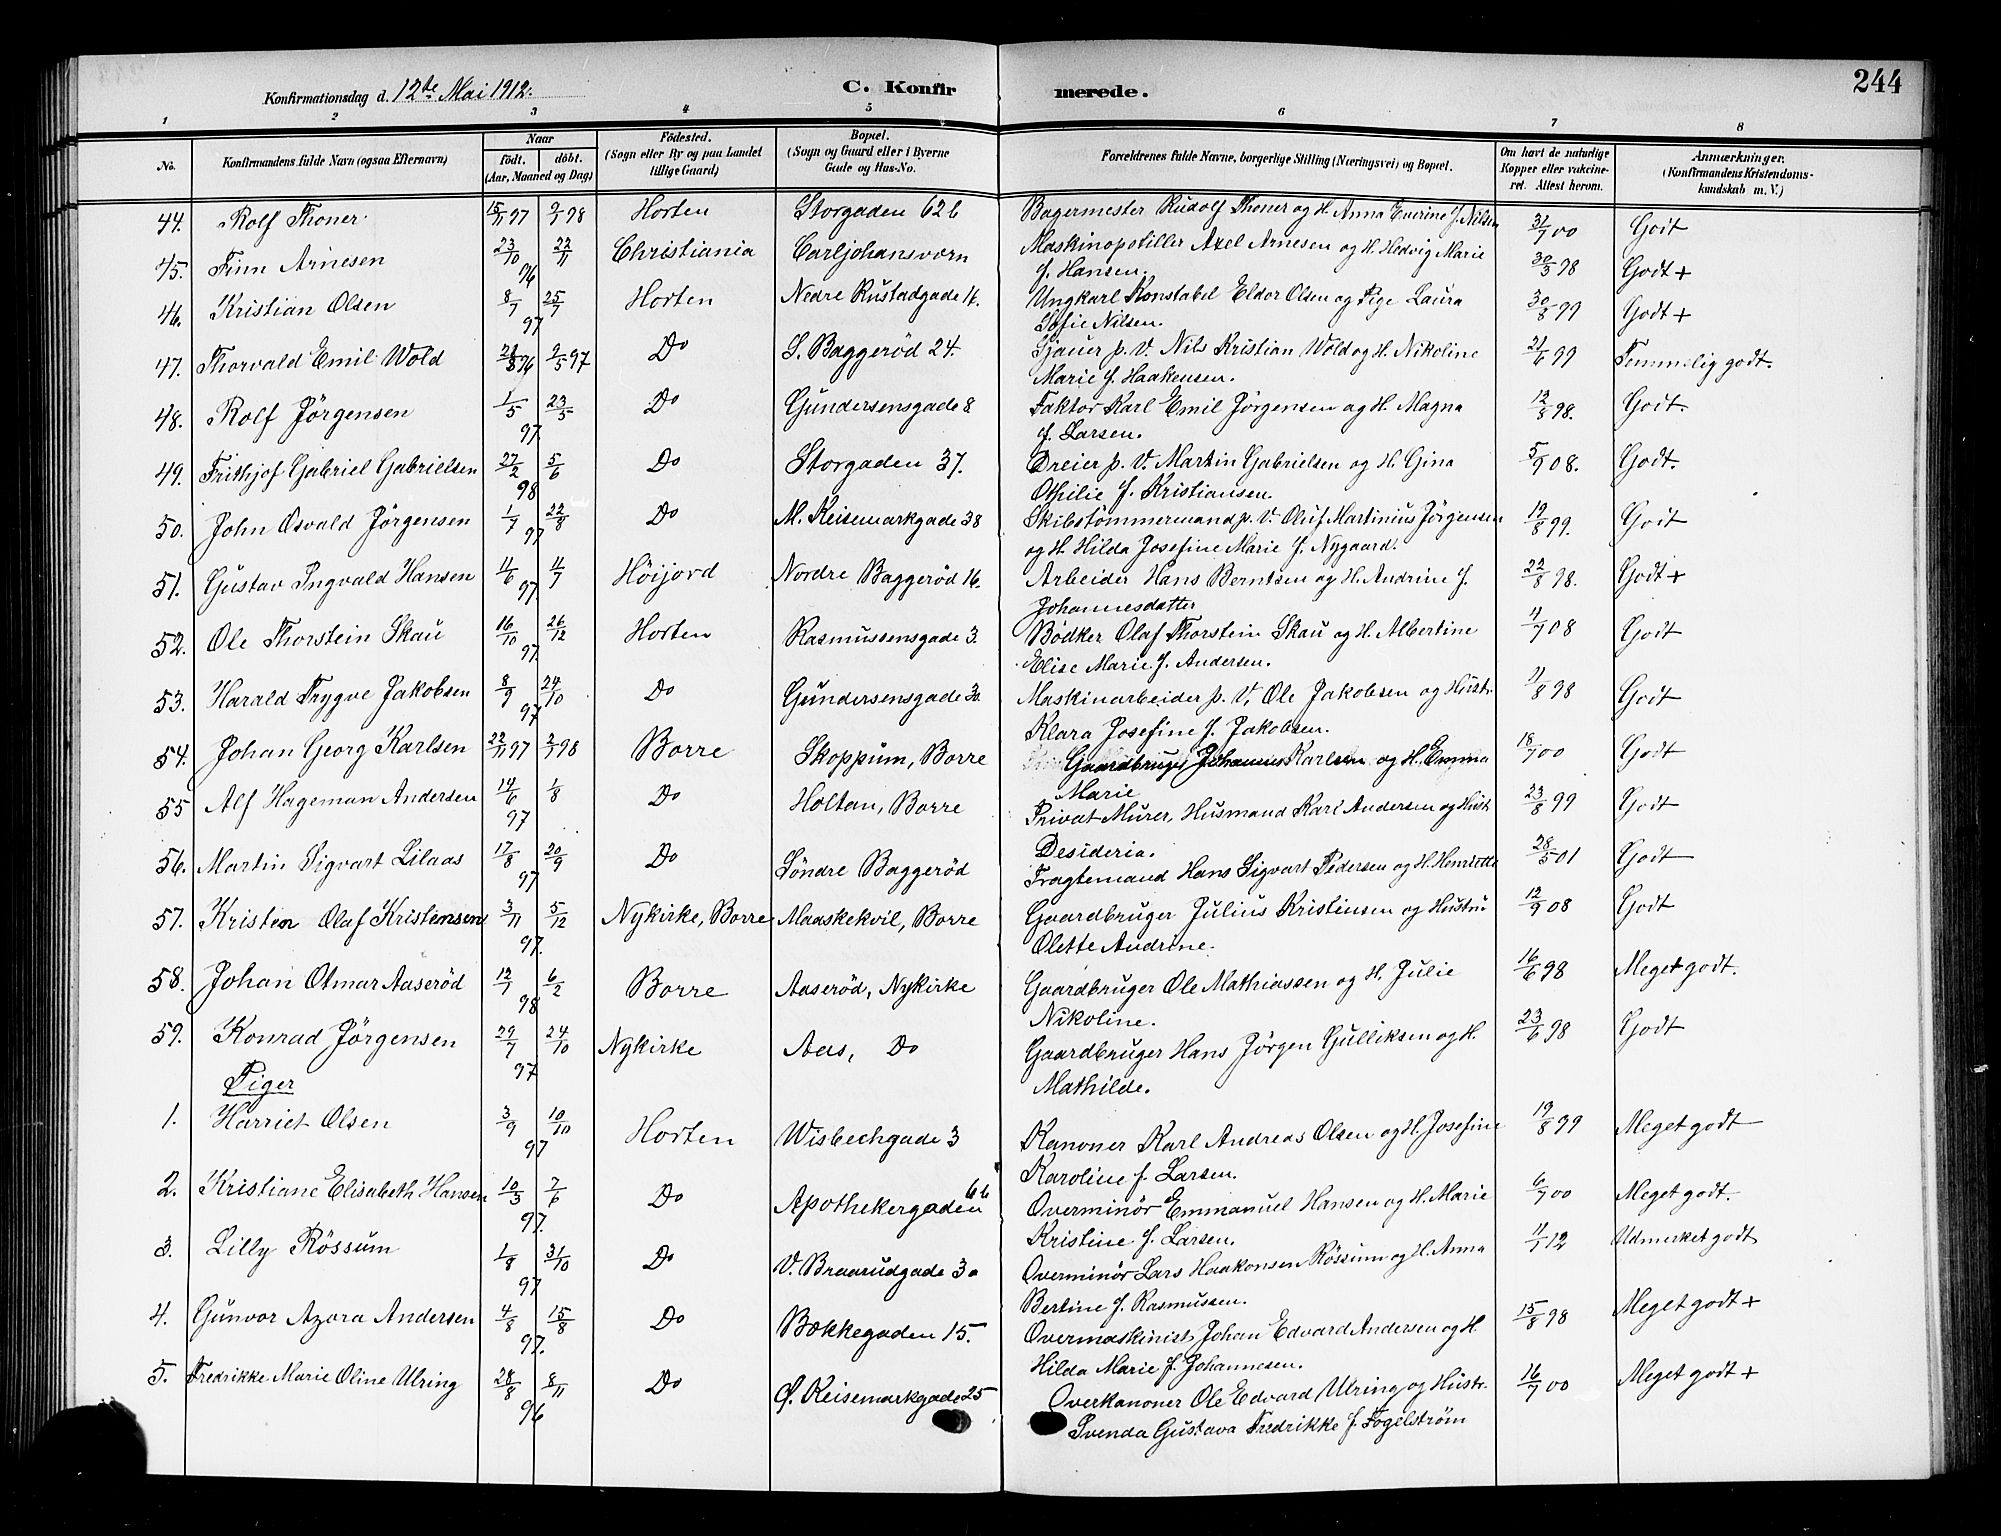 244
Konfirmationsdag d. 12te Mai 1912.
C. Konfirmerede.
1 2 3 4 5 6 7 8
No.
Konfirmandens fulde Navn (ogsaa Efternavn)
Naar
födt. döbt.
(Aar, Maaned og Dag)
Födested.
(Sogn eller By og paa Landet
tillige Gaard)
Bopæl.
(Sogn og Gaard eller i Byerne
Gade og Hus-No.
Forældrenes fulde Navne, borgerlige Stilling (Næringsvei) og Bopæl.
Om havt de naturlige
Kopper eller vakcine-
ret. Attest herom.
Anmærkninger.
(Konfirmandens Kristendoms-
kundskab m. V.)
44. Rolf Thoner. 15/11 97 9/1 98 Horten Storgaden 62 b Bagermester Rudolf Thoner og H. Anna Everine f. Nilsen 31/7 00 Godt
45. Finn Arnesen 23/10 22/11 96 Christiania Carljohansværn Maskinopstiller Axel Arnesen og H. Hedvig Marie
f. Hansen. 30/3 98 Godt +
46. Kristian Olsen 8/7 25/7 97 Horten Nedre Rustadgade 16. Ungkarl Konstabel Eldor Olsen og Pige Laura
Sofie Nilsen. 30/8 99 Godt +
47. Thorvald Emil Wold 21/8 96 9/5 97 Do S. Baggeröd 24. Sjauer p. V. Nils Kristian Wold og H. Nikoline
Marie f. Haakensen. 21/6 99 Temmelig godt.
48. Rolf Jörgensen 1/5 23/5 97. Do Gundersensgade 8 Faktor Karl Emil Jörgensen og H. Magna
f. Larsen. 12/8 98. Godt.
49. Frithjof Gabriel Gabrielsen 27/2 5/6 98 Do Storgaden 37. Dreier p. V. Martin Gabrielsen og H. Gina
Othilie f. Kristiansen. 5/9 08. Godt.
50. John Osvald Jörgensen 1/7 22/8 97. Do M. Keisemarkgade 38 Skibstömmermand p. V. Oluf Martinius Jörgensen
og H. Hilda Josefine Marie f. Nygaard. 19/8 99. Godt
51. Gustav Ingvald Hansen 11/6 11/7 97. Höijord Nordre Baggeröd 16. Arbeider Hans Berntsen og H. Andrine f.
Johannesdatter 22/8 98. Godt +
52. Ole Thorstein Skau 16/10 26/12 97. Horten Rasmussensgade 3. Bödker Olaf Thorstein Skau og H. Albertine
Elise Marie f. Andersen. 11/7 08 Godt
53. Harald Trygve Jakobsen 8/9 24/10 97 Do Gundersensgade 30. Maskinarbeider p. V. Ole Jakobsen og Hustr.
Klara Josefine f. Jakobsen. 11/8 98 Godt
54. Johan Georg Karlsen 22/11 97 2/1 98 Borre Skoppum, Borre Gaardbruger Johannes Karlsen og H. Emma
Marie 18/7 00 Godt
55 Alf Hageman Andersen 14/6 1/8 97 Do Holtan, Borre Privat Murer, Husmand Karl Andersen og Hust.
Desideria. 23/8 99 Godt
56. Martin Sigvart Lilaas 17/8 20/9 97 Do Söndre Baggeröd Fragtemand Hans Sigvart Pedersen og H. Henriette 28/5 01 Godt
57. Kristen Olaf Kristensen 3/11 5/12 97. Nykirke, Borre Maaskekvil, Borre Gaardbruger Julius Kristensen og Hustru
Olette Andrine. 12/9 08 Godt
58. Johan Otmar Aaseröd 12/7 6/2 98 Borre Aaseröd, Nykirke Gaardbruger Ole Mathiassen og H. Julie
Nikoline. 16/6 98 Meget godt.
59. Konrad Jörgensen 29/7 24/10 97 Nykirke Aas, Do Gaardbruger Hans Jörgen Gulliksen og H.
Mathilde. 23/6 98 Godt
Piger
1. Harriet Olsen 3/9 10/10 97 Horten Wisbechgade 3 Kanoner Karl Andreas Olsen og H. Josefine
Karoline f. Larsen. 19/8 99 Meget godt
2. Kristiane Elisabeth Hansen 10/3 7/6 97. Do Apothekergaden 6 b Overminör Emmanuel Hansen og H. Marie
Kristine f. Larsen. 6/7 00 Meget godt.
3. Lilly Rössum 1/8 31/10 97 Do V. Braarudgade 3 a Overminör Lars Haakonsen Rössum og H. Anna
Bertine f. Rasmussen. 11/1 12 Udmerket godt
4. Gunvor Azora Andersen 4/8 15/8 97. Do Bækkegaden 15. Overmaskinist Johan Edvard Andersen og H.
Hilda Marie f. Johannesen. 15/8 98 Meget godt +
5. Fredrikke Marie Oline Ulring 28/8 8/11 96 Do Ø. Keisemarkgade 25 Overkanoner Ole Edvard Ulring og Hustr.
Svenda Gustava Fredrikke f. Fogelström 16/7 00 Meget godt +